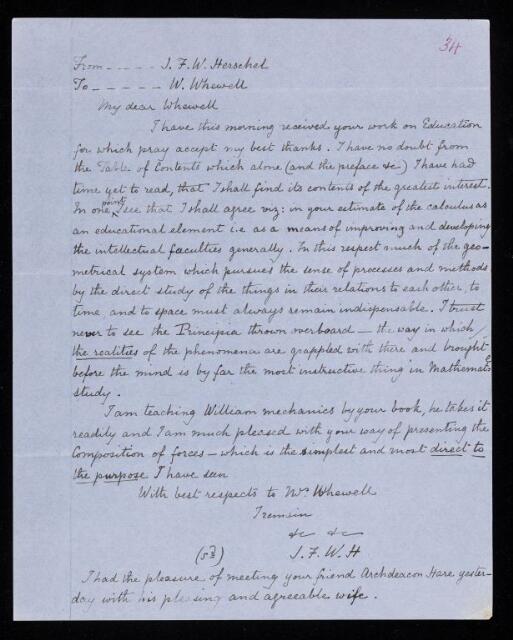 34
From - - - - - J. F. W. Herschel
To - - - - - W. Whewell
My dear Whewell
I have this morning received your work on Education
for which pray accept my best thanks. I have no doubt from
the Table of Contents which alone (and the preface &c) I have had
time yet to read, that I shall find its contents of the greatest interest.
In one point I see that I shall agree viz: in your estimate of the calculus as
an educational element i.e as a means of improving and developing
the intellectual faculties generally. In this respect much of the geo-
metrical system which pursues the sense of processes and methods
by the direct study of the things in their relations to each other, to
time, and to space must always remain indispensable. I trust
never to see the Principia thrown overboard — the way in which
the realities of the phenomena are grappled with there and brought
before the mind is by far the most instructive thing in Mathematl
study.
I am teaching William mechanics by your book, he takes it
readily and I am much pleased with your way of presenting the
Composition of forces — which is the simplest and most direct to
the purpose I have seen
With best respects to Mrs Whewell
I remain
&c &c
J. F. W. H
I had the pleasure of meeting your friend Archdeacon Hare yester-
day with his pleasing and agreeable wife.